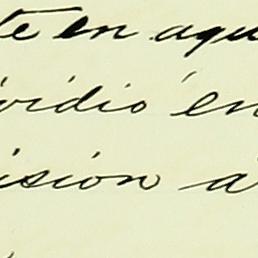 te en aqu
ividió en
isión a